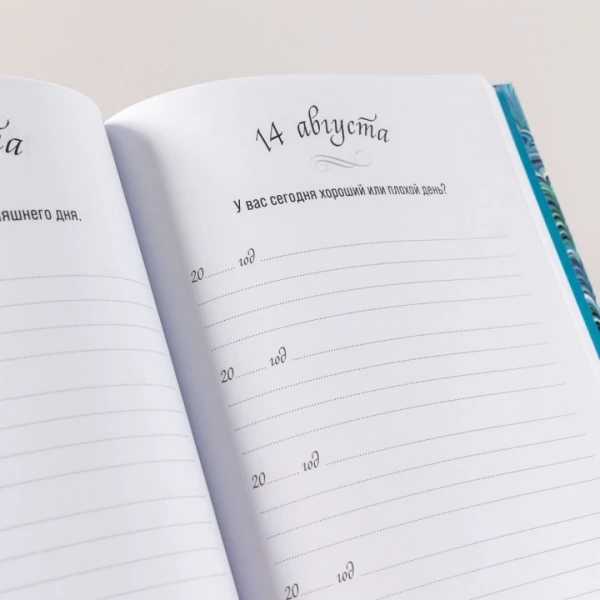 та
няшнего дня.
14 августа
У вас сегодня хороший или плохой день?
20........ год
20........ год
20........ год
20........ год